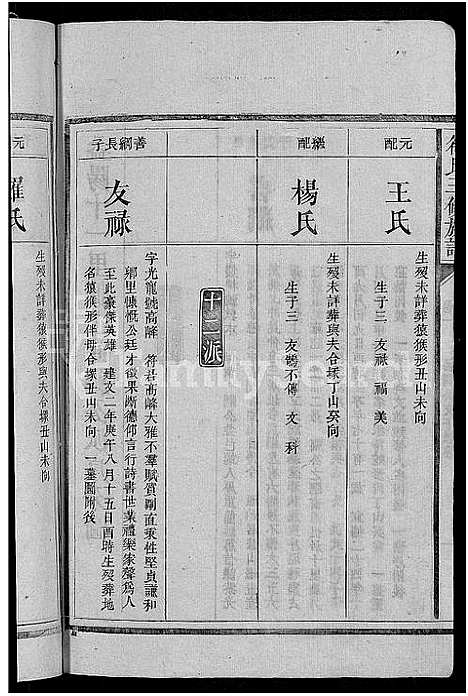 元配
王氏
生歿未詳葬猿猴形丑山未向
生子三 友祿 福 美
繼配
楊氏
生歿未詳葬與夫合塚丁山癸向
生子三 友鸞不傳 文 科
十二派
善綱長子
友祿
字光龍號高峰 符君高峰大雅不羣賦質剛直秉性堅貞謙和
鄉里慷慨公廷才後果斷德仰言行詩書世業禮樂家聲爲人
至此豪傑英雄 建文二年庚午八月十五日酉時生歿葬地
名猿猴形伴母合塚丑山未向 一墓圖附後
元
羅氏
生歿未詳葬猿猴形與夫合塚丑山未向